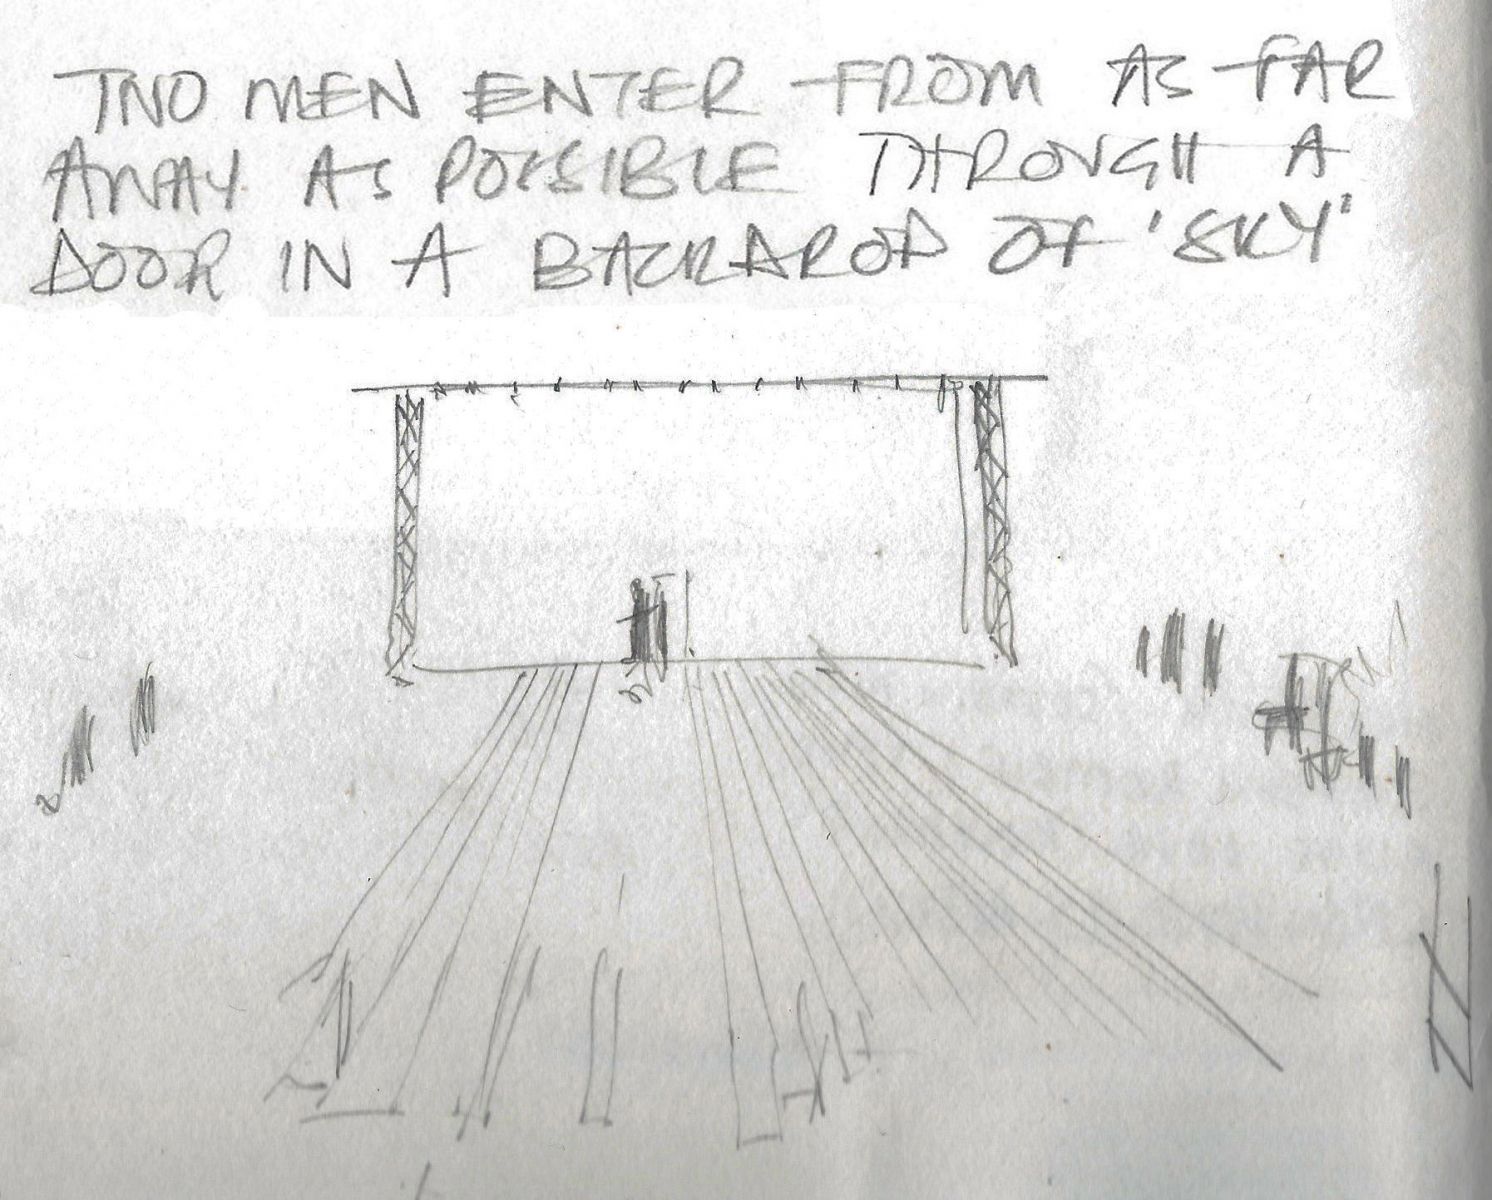 TWO MEN ENTER FROM AS FAR
AWAY AS POSSIBLE THROUGH A
DOOR IN A BACKDROP OF 'SKY'